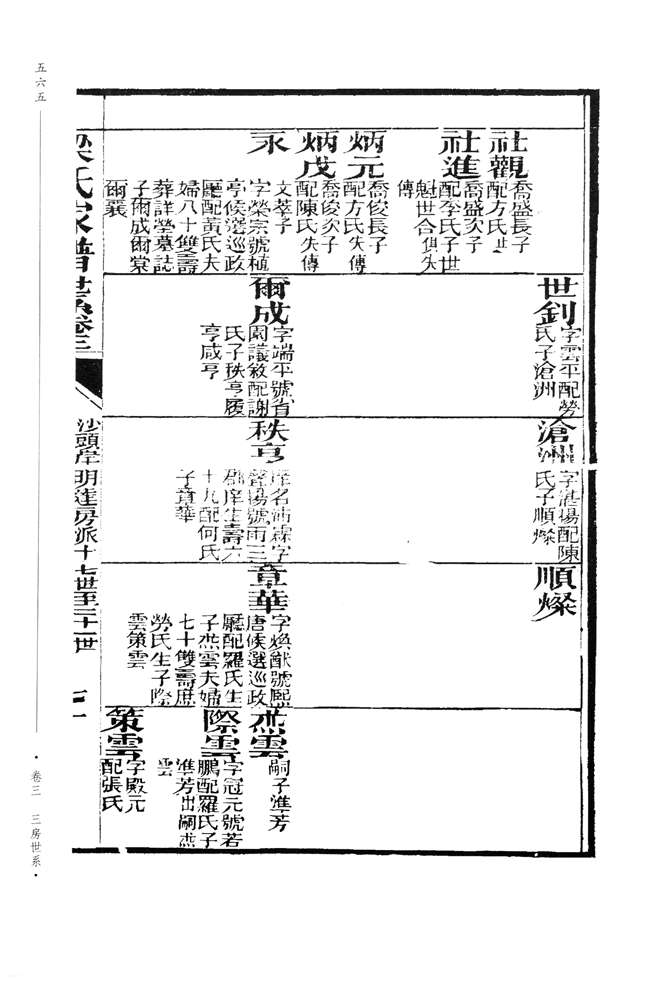 社觀
喬盛長子
配方氏
社進
喬盛次子
配李氏子世
魁世合俱失
傳
炳元
喬俊長子
配方氏失傳
炳茂
喬俊次子
配陳氏失傳
永
文莑子
字榮宗號植
亭候選巡政
廳配黃氏夫
婦八十雙壽
葬詳塋墓誌
子爾成爾棠
爾襄
世釗
字雲平配勞
氏子滄洲
爾成
字端平號省
園議敘配謝
氏子秩亨履
亨咸亨
滄洲
字湛揚配陳
氏子順燦
秩亨
庠名沛霖字
聲揚號雨三
郡庠生壽六
十九配何氏
子章華
順燦
章華
字煥猷號熙
唐候選巡政
廳配羅氏生
子燕雲夫婦
七十雙壽庶
勞氏生子際
雲策雲
燕雲
嗣子準芳
際雲
字冠元號若
鵬配羅氏子
準芳出嗣燕
雲
策雲
字殿元
配張氏
梁氏家譜世系卷三
沙頭岸明達房派十七世至二十一世
五六五
·卷三 三房世系·